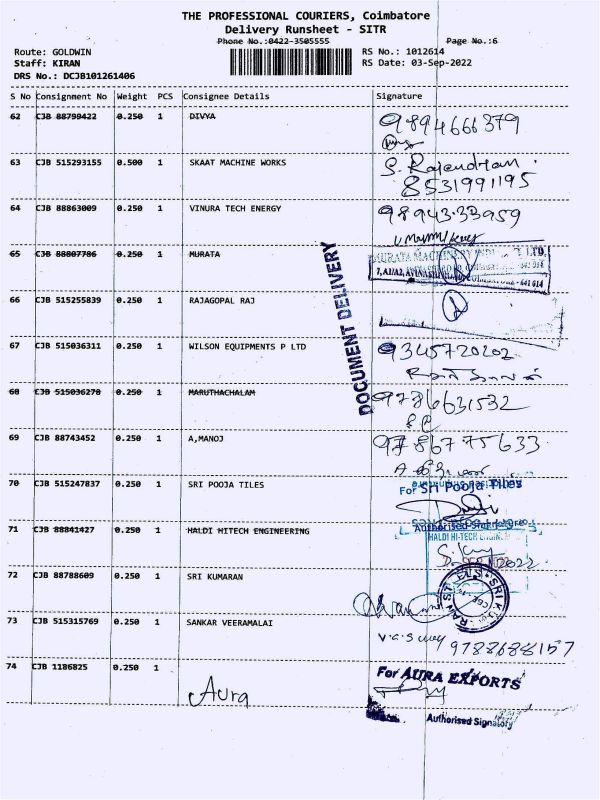 THE PROFESSIONAL COURIERS, Coimbatore
Delivery Runsheet - SITR
Phone No.:0422-3505555 Page No.:6
Route: GOLDWIN RS No.: 1012614
Staff: KIRAN RS Date: 03-Sep-2022
DRS No.: DCJB101261406
S No Consignment No Weight PCS Consignee Details Signature
62 CJB 88799422 0.250 1 DIVYA 9894666379
63 CJB 515293155 0.500 1 SKAAT MACHINE WORKS S. Rajendran.
8531991195
64 CJB 88863009 0.250 1 VINURA TECH ENERGY 98943 33959
65 CJB 88807786 0.250 1 MURATA MURATA MACHINERY LTD.
641 014
DOCUMENT DELIVERY
66 CJB 515255839 0.250 1 RAJAGOPAL RAJ
67 CJB 515036311 0.250 1 WILSON EQUIPMENTS P LTD 9345720202
68 CJB 515036270 0.250 1 MARUTHACHALAM 9786631532
69 CJB 88743452 0.250 1 A,MANOJ 9786775633
70 CJB 515247837 0.250 1 SRI POOJA TILES For Sri Pooja Tiles
Authorised Signatory
71 CJB 88841427 0.250 1 HALDI HITECH ENGINEERING HALDI HI-TECH ENGIN
72 CJB 88788609 0.250 1 SRI KUMARAN
SRI CBE
73 CJB 515315769 0.250 1 SANKAR VEERAMALAI 9788688157
74 CJB 1186825 0.250 1 Aura For AURA EXPORTS
Authorised Signatory